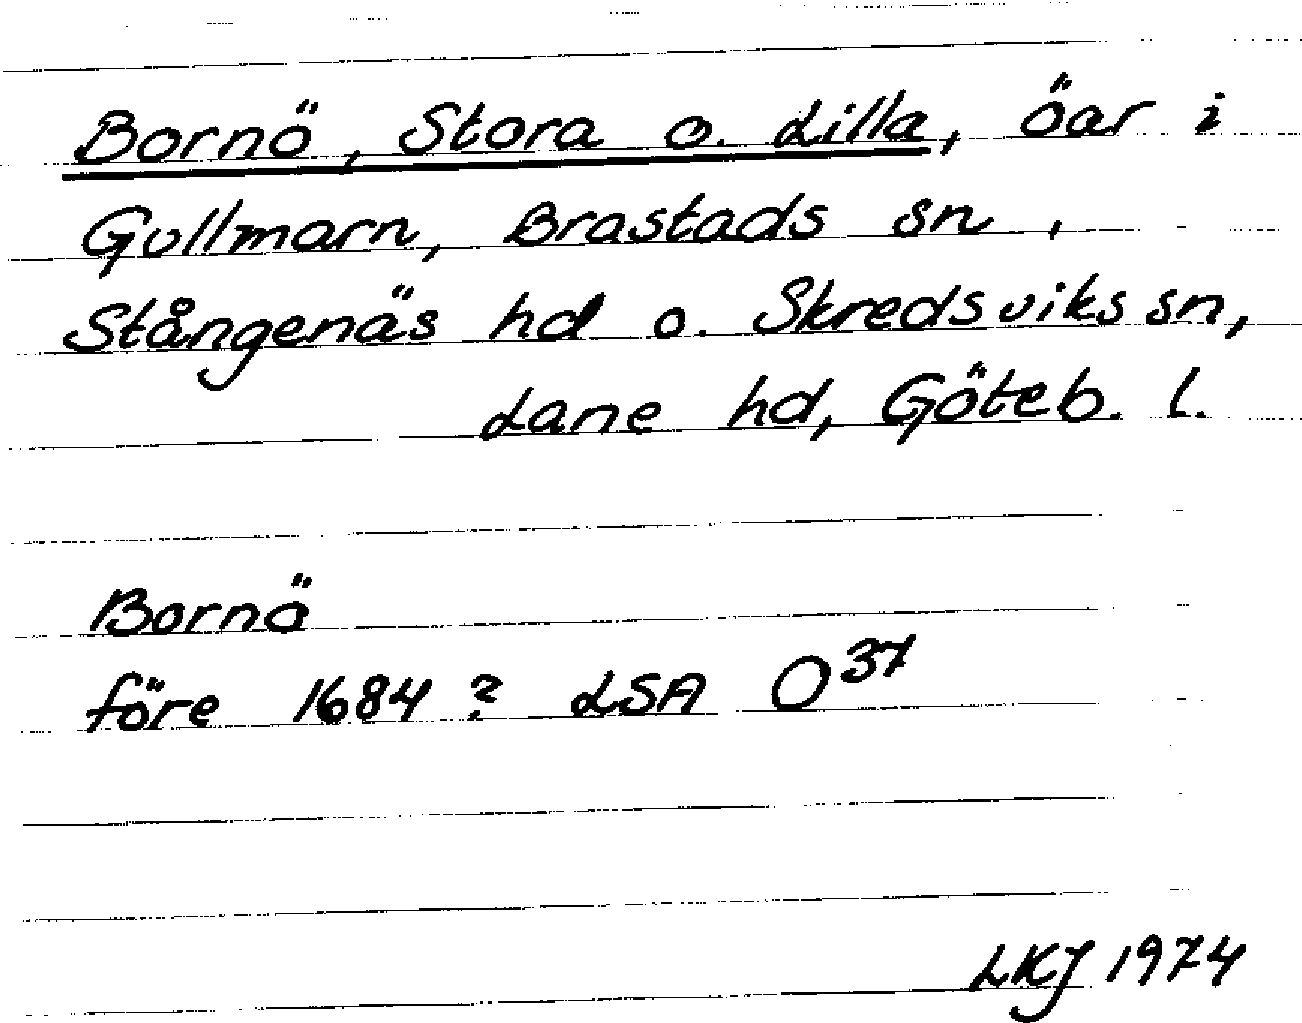 Bornö, Stora o. Lilla, öar i
Gullmarn, Brastads sn,
Stångenäs hd o. Skredsviks sn,
Lane hd, Göteb. l.
Bornö
före 1684? LSA O³⁷
LKJ 1974